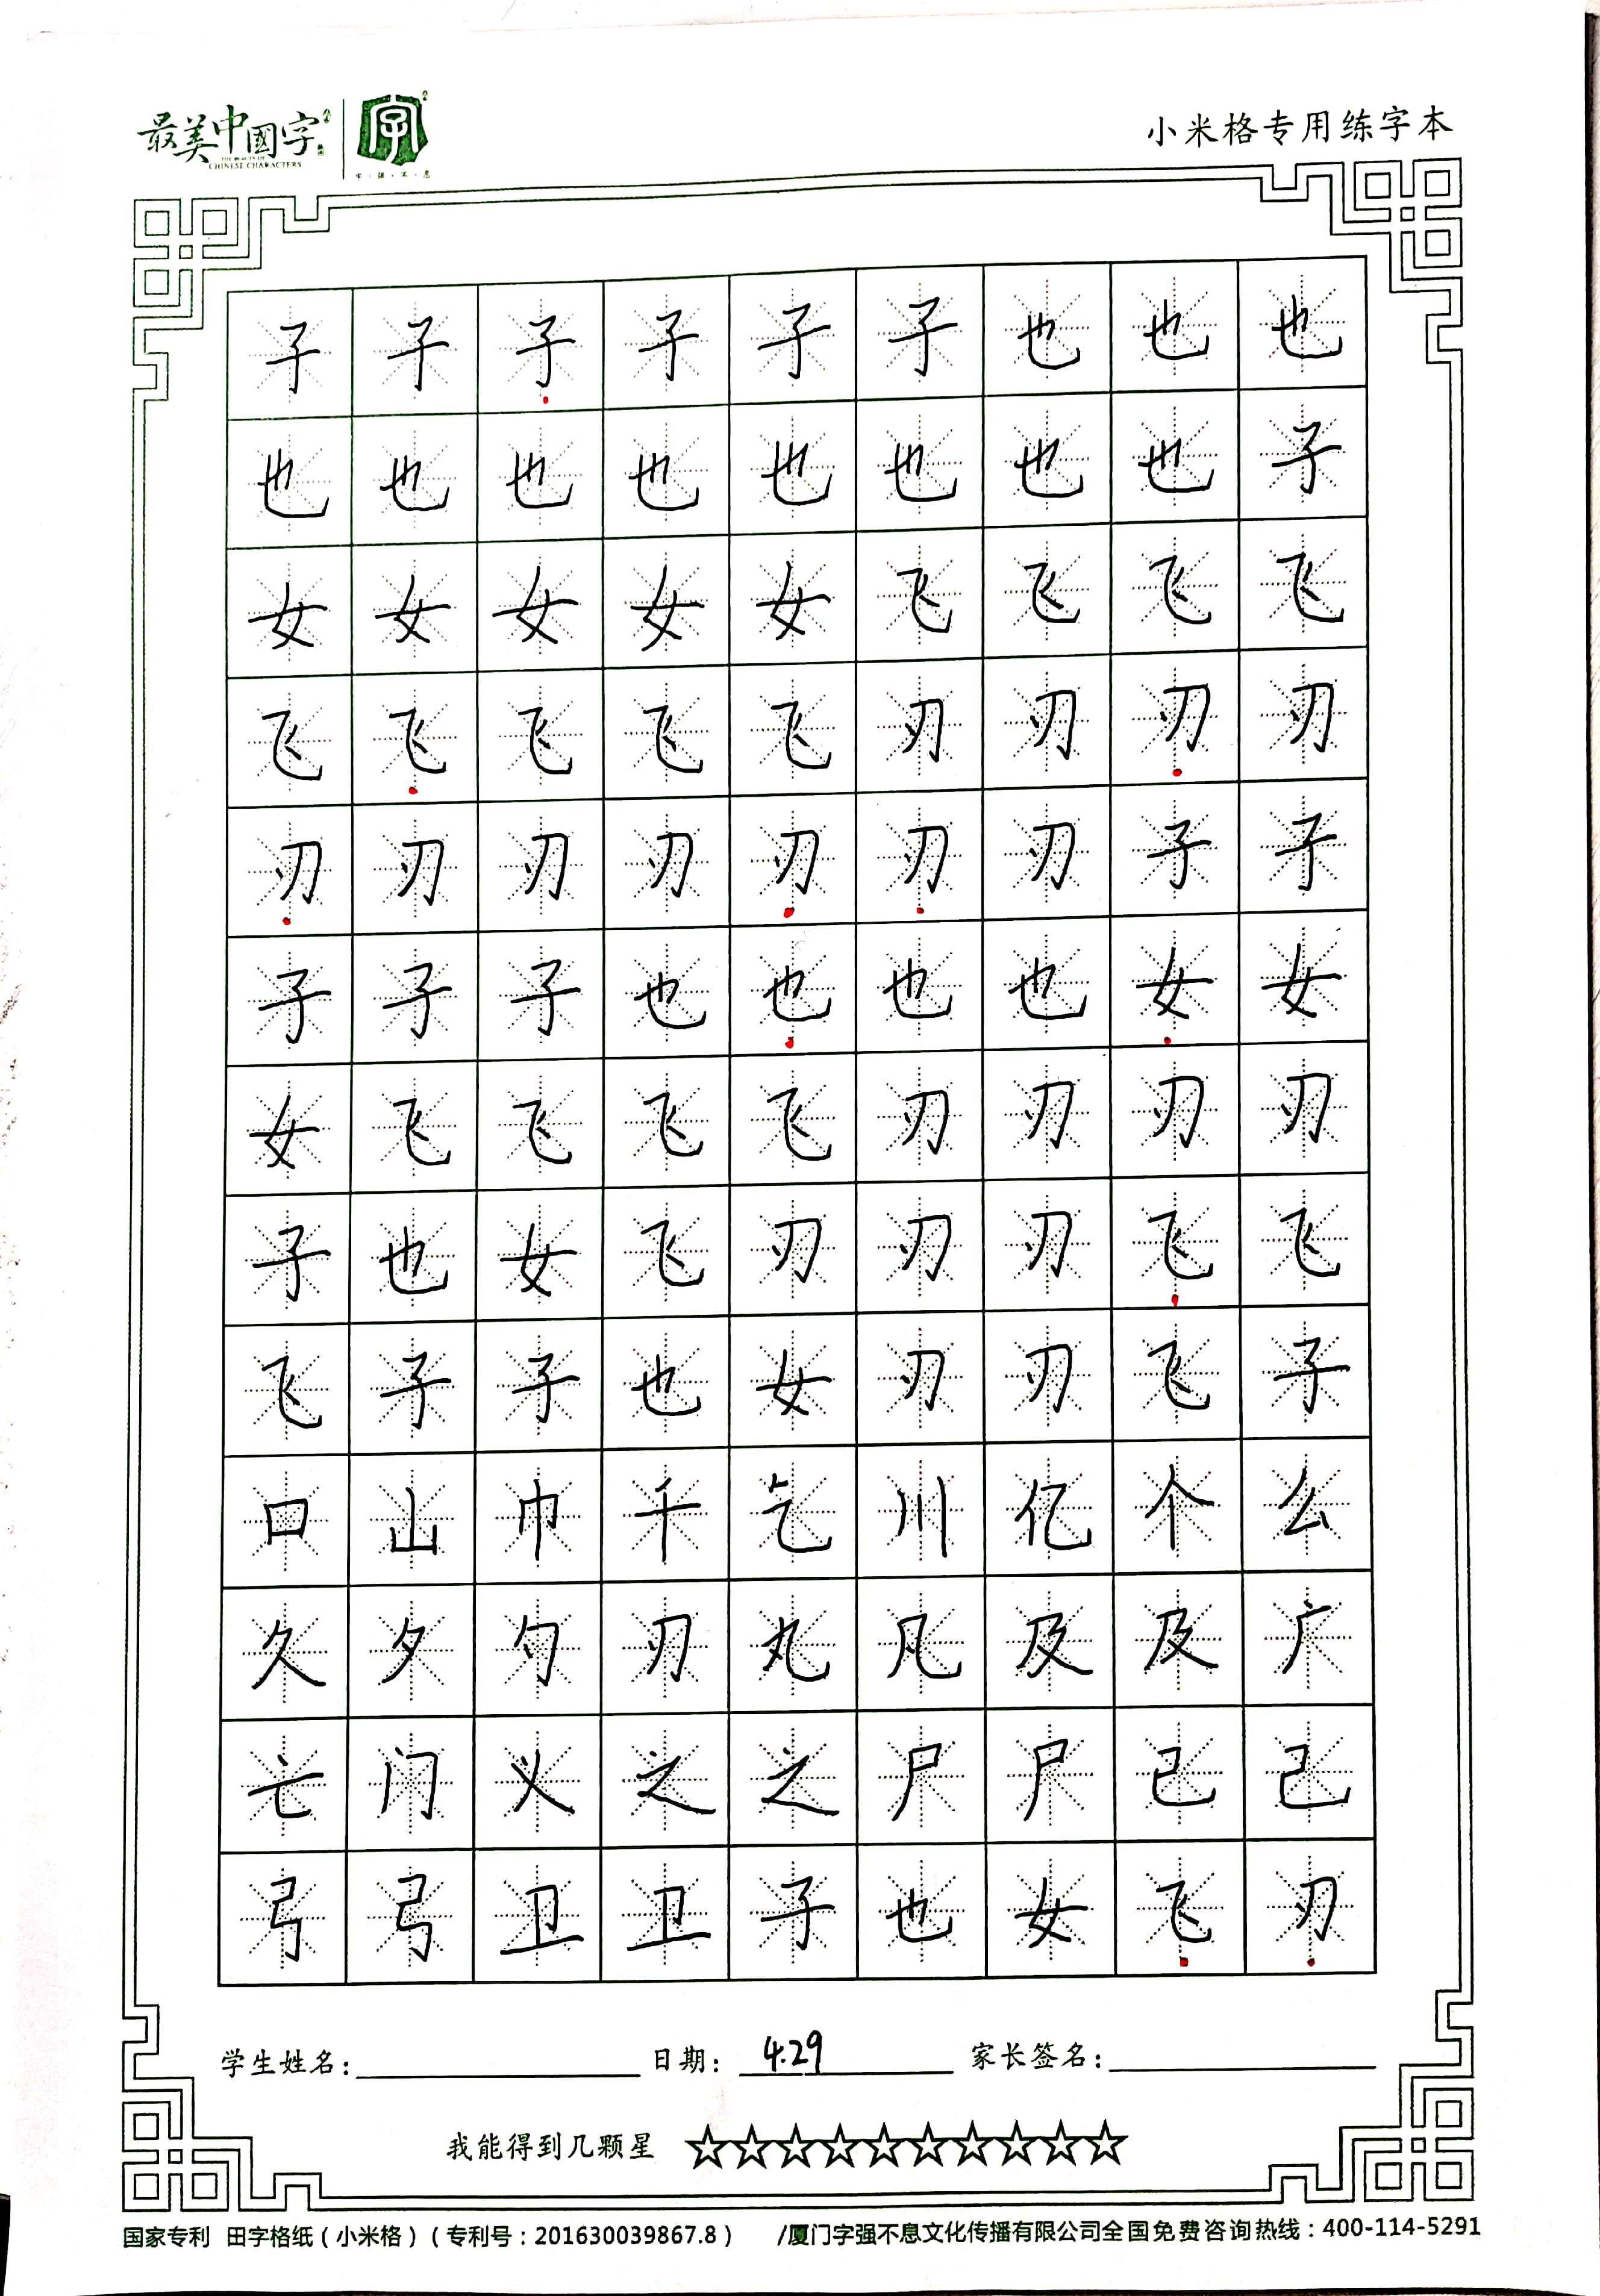 最美中國字
THE BEAUTY OF
CHINESE CHARACTERS
字
字·强·不·息
小米格专用练字本
子子子子子子也也也
也也也也也也也也子
女女女女女飞飞飞飞
飞飞飞飞飞刃刃刃刃
刃刃刃刃刃刃刃子子
子子子也也也也女女
女飞飞飞飞刃刃刃刃
子也女飞刃刃刃飞飞
飞子子也女刃刃飞子
口山巾千乞川亿个么
久夕勺刃丸凡及及广
亡门义之之尸尸己己
弓弓卫卫子也女飞刃
学生姓名: 日期: 4.29 家长签名:
我能得到几颗星
国家专利 田字格纸(小米格)(专利号:201630039867.8) /厦门字强不息文化传播有限公司全国免费咨询热线:400-114-5291